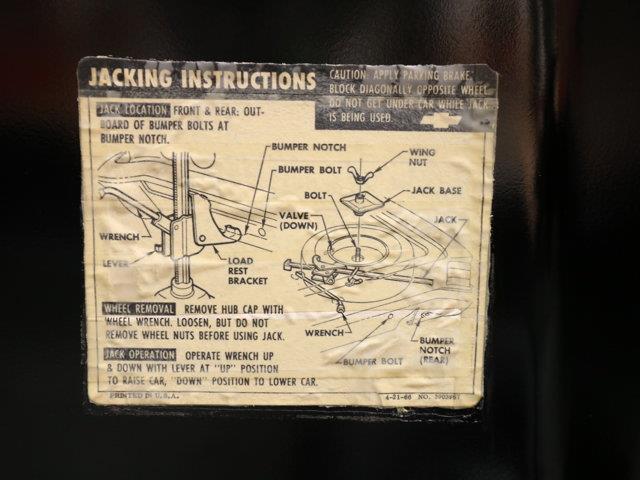 JACKING INSTRUCTIONS
CAUTION: APPLY PARKING BRAKE.
BLOCK DIAGONALLY OPPOSITE WHEEL
DO NOT GET UNDER CAR WHILE JACK
IS BEING USED.
JACK LOCATION FRONT & REAR: OUT-
BOARD OF BUMPER BOLTS AT
BUMPER NOTCH.
BUMPER NOTCH
BUMPER BOLT
WING
NUT
BOLT
JACK BASE
VALVE
(DOWN)
JACK
WRENCH
LEVER
LOAD
REST
BRACKET
WHEEL REMOVAL REMOVE HUB CAP WITH
WHEEL WRENCH. LOOSEN, BUT DO NOT
REMOVE WHEEL NUTS BEFORE USING JACK.
WRENCH
BUMPER BOLT
BUMPER
NOTCH
(REAR)
JACK OPERATION OPERATE WRENCH UP
& DOWN WITH LEVER AT "UP" POSITION
TO RAISE CAR, "DOWN" POSITION TO LOWER CAR.
PRINTED IN U.S.A.
4-21-66 NO.